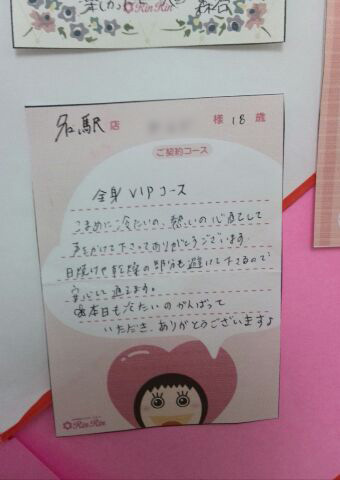 楽しかっ
RinRin
森谷
名駅 店
様 18 歳
ご契約コース
全身 VIPコース
こまめに冷たいの、熱いの心配して
声をかけて下さってありがとうございます
日焼けや乾燥の部分も避けて下さるので
安心して通えます。
本日も冷たいのがんばって
いただき ありがとうございますよ
RinRin